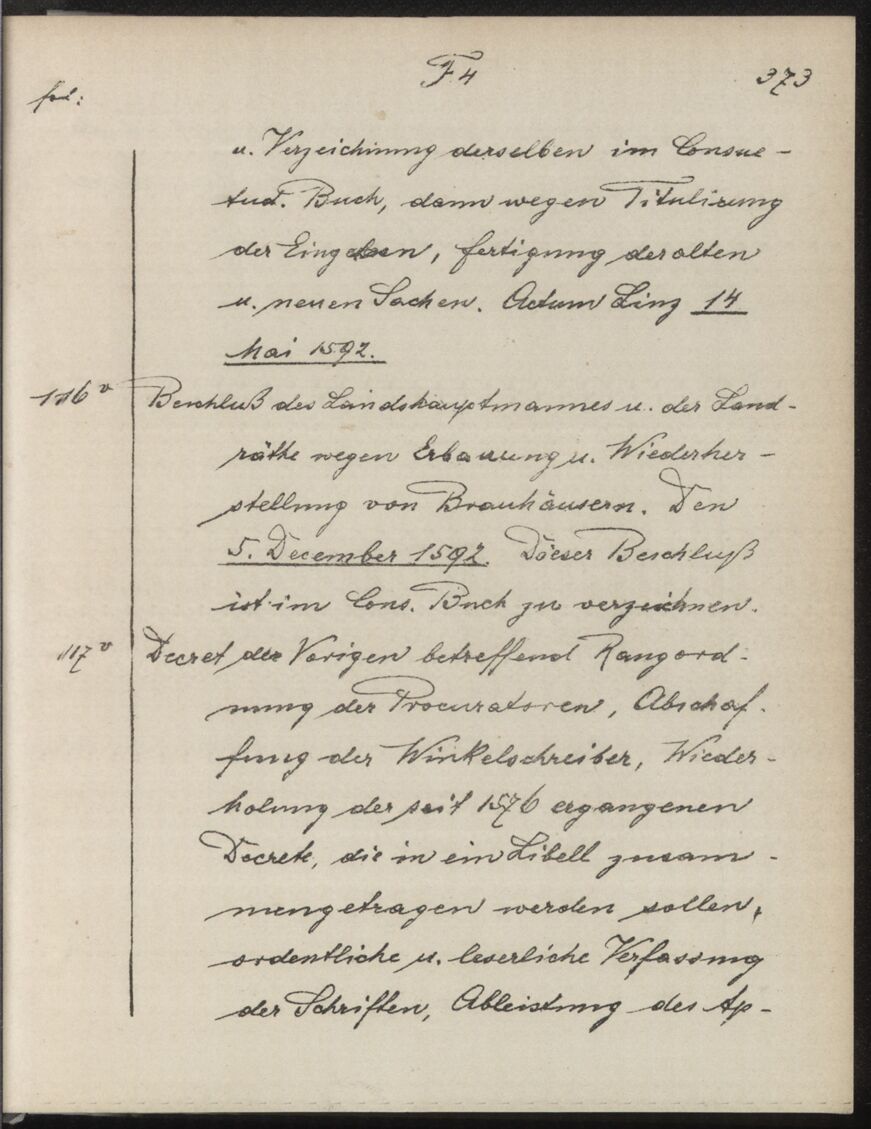 F 4 373
fol:
u. Verzeichnung derselben im Consue-
tud. Buch, dann wegen Titulirung
der Eingaben, fertigung der alten
u. neuen Sachen. Actum Linz 14
Mai 1592.
116v Beschluß des Landshauptmannes u. der Land-
räthe wegen Erbauung u. Wiederher-
stellung von Brauhäusern. Den
5. December 1592. Dieser Beschluß
ist im Cons. Buch zu verzeichnen.
117v Decret der Vorigen betreffend Rangord-
nung der Procuratoren, Abschaf-
fung der Winkelschreiber, Wieder-
holung der seit 1576 ergangenen
Decrete, die in ein Libell zusam-
mengetragen werden sollen,
ordentliche u. leserliche Verfassung
der Schriften, Ableistung des Ap-